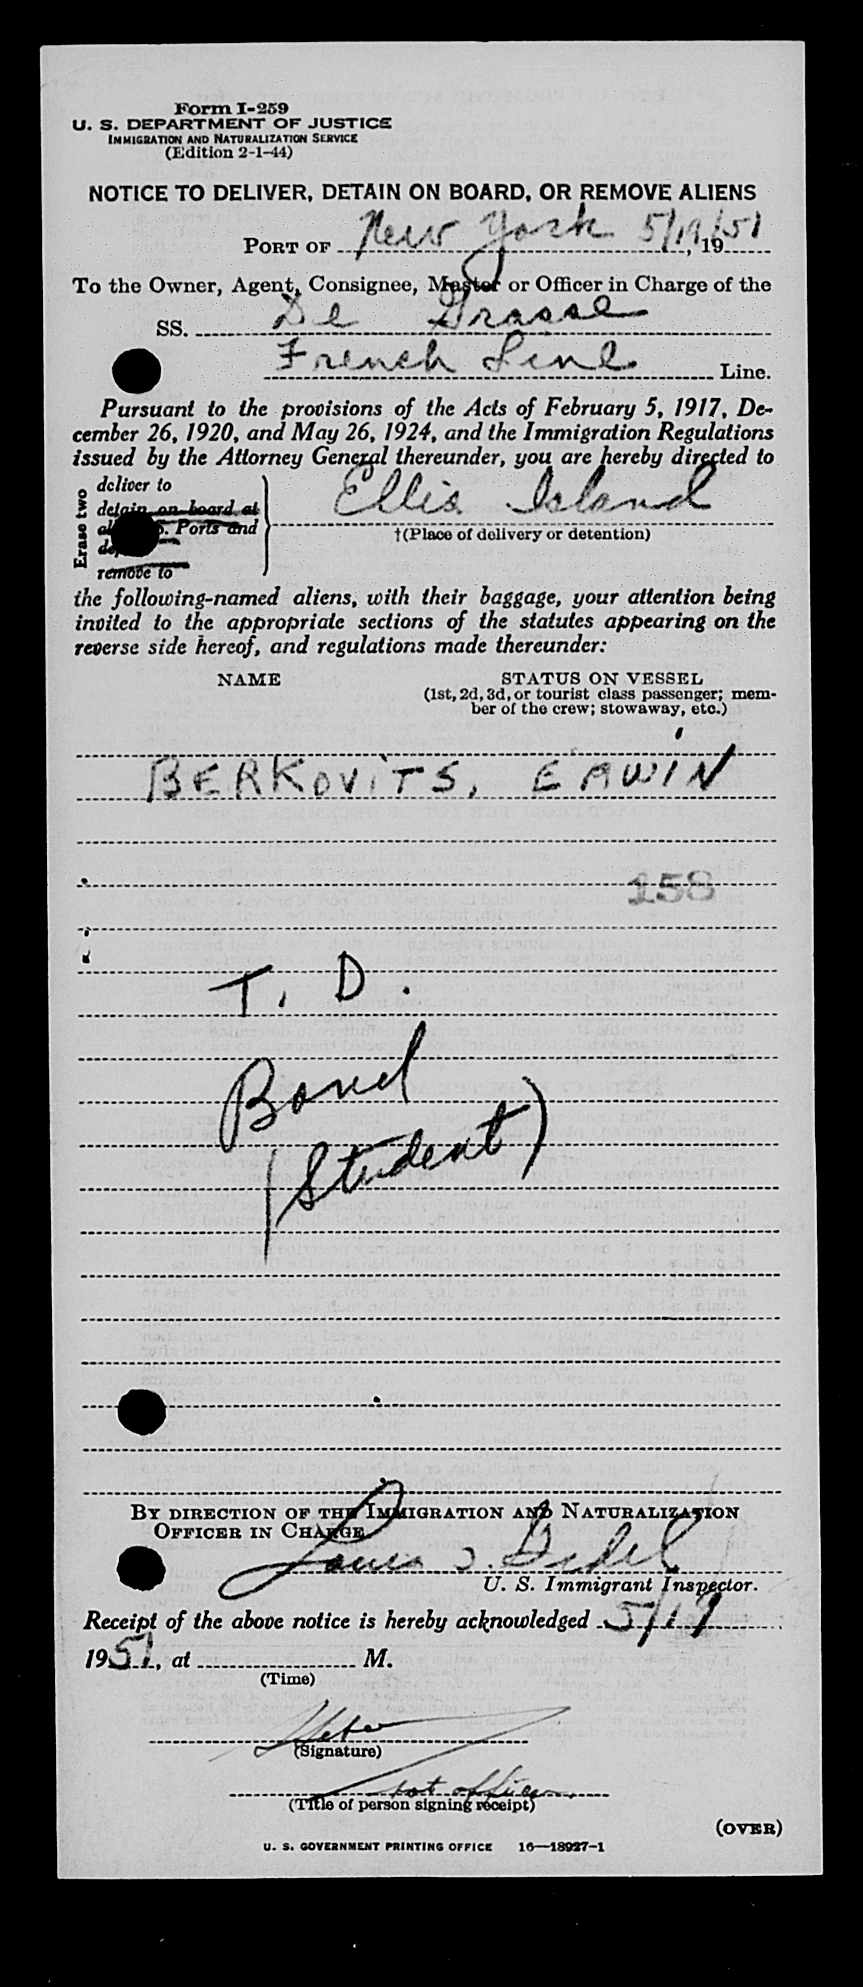 Form I-259
U. S. DEPARTMENT OF JUSTICE
IMMIGRATION AND NATURALIZATION SERVICE
(Edition 2-1-44)
NOTICE TO DELIVER, DETAIN ON BOARD, OR REMOVE ALIENS
PORT OF New York 5/19, 19/51
To the Owner, Agent, Consignee, Master or Officer in Charge of the
SS. De Grasse
French Line Line.
Pursuant to the provisions of the Acts of February 5, 1917, De-
cember 26, 1920, and May 26, 1924, and the Immigration Regulations
issued by the Attorney General thereunder, you are hereby directed to
Erase two
deliver to
detain on board at
Ports and
remove to
Ellis Island
†(Place of delivery or detention)
the following-named aliens, with their baggage, your attention being
invited to the appropriate sections of the statutes appearing on the
reverse side hereof, and regulations made thereunder:
NAME STATUS ON VESSEL
(1st, 2d, 3d, or tourist class passenger; mem-
ber of the crew; stowaway, etc.)
BERKOVITS, ERWIN
158
T. D.
Bond
(Student)
BY DIRECTION OF THE IMMIGRATION AND NATURALIZATION
OFFICER IN CHARGE
Louis
U. S. Immigrant Inspector.
Receipt of the above notice is hereby acknowledged 5/19
1951, at M.
(Time)
(Signature)
officer
(Title of person signing receipt)
(OVER)
U. S. GOVERNMENT PRINTING OFFICE 16—18927-1